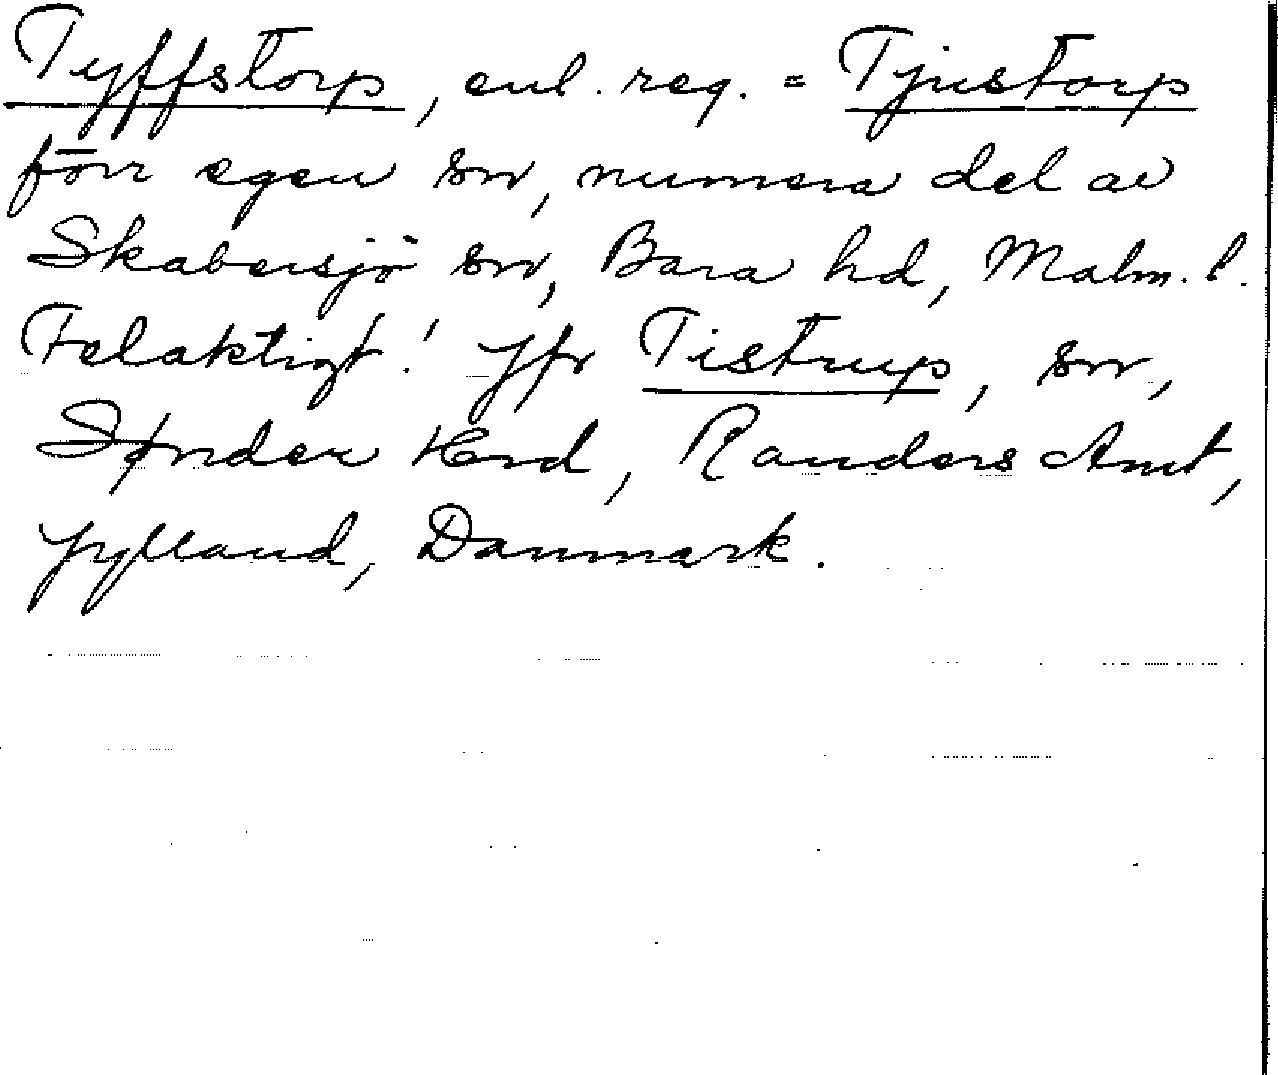 Tyffstorp, enl. reg. = Tjustorp
förr egen sn, numera del av
Skabersjö sn, Bara hd, Malm. l.
Felaktigt! Jfr Tistrup, sn,
Sønder Herd, Randers Amt,
Jylland, Danmark.